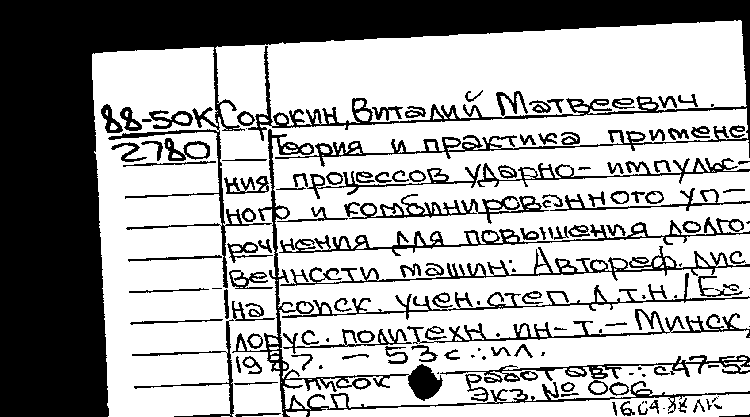 88-50К Сорокин, Виталий Матвеевич.
2780 Теория и практика примене
ния процессов ударно-импульс-
ного и комбинированного уп-
рочнения для повышения долго-
вечности машин: Автореф. дис
на соиск. учен. степ. д.т.н. / Бе
лорус. политехн. ин-т. — Минск,
1987. — 53 с.: ил.
Список работ авт.: с 47-53
ДСП. Экз. № 006.
16.04.88 ЛК